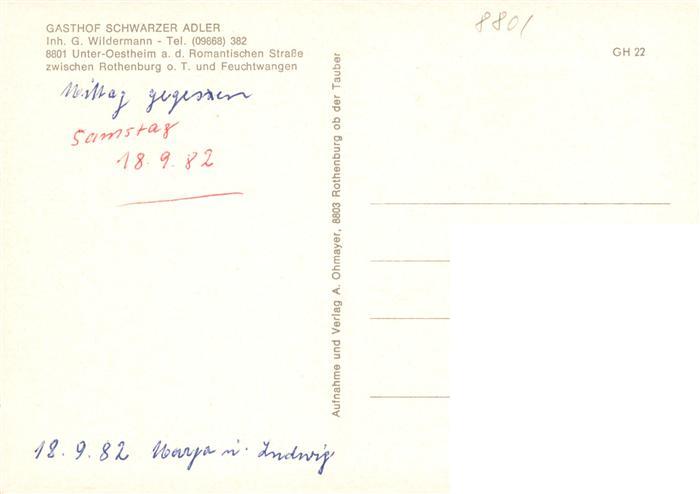 GASTHOF SCHWARZER ADLER
Inh. G. Wildermann - Tel. (09868) 382
8801 Unter-Oestheim a. d. Romantischen Straße
zwischen Rothenburg o. T. und Feuchtwangen
Mittag gegessen
Samstag
18.9.82
18.9.82 Marga u. Ludwig
Aufnahme und Verlag A. Ohmayer, 8803 Rothenburg ob der Tauber
8801
GH 22